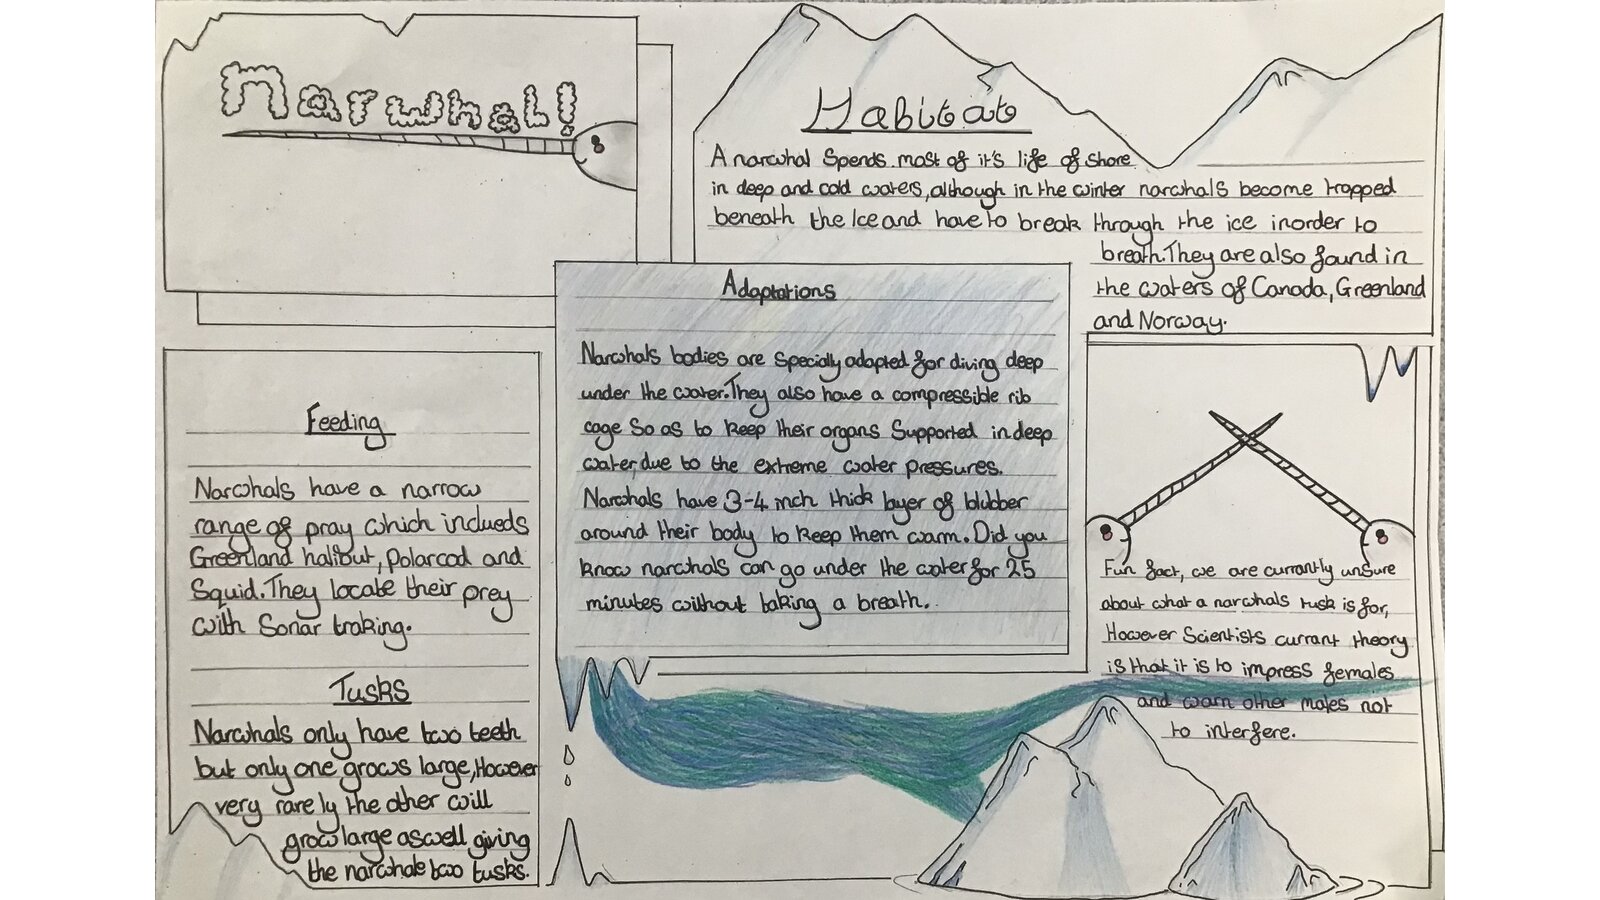 Narwhal!
Habitat
A narwhal Spends most of it's life of shore
in deep and cold waters, although in the winter narwhals become trapped
beneath the Ice and have to break through the ice inorder to
breath. They are also found in
the waters of Canada, Greenland
and Norway.
Adaptations
Narwhals bodies are specially adapted for diving deep
under the water. They also have a compressible rib
cage So as to keep their organs Supported in deep
water, due to the extreme water pressures.
Narwhals have 3-4 inch thick layer of blubber
around their body to keep them warm. Did you
know narwhals can go under the water for 25
minutes without taking a breath.
Feeding
Narwhals have a narrow
range of pray which inclueds
Greenland halibut, Polarcod and
Squid. They locate their prey
with Sonar traking.
Tusks
Narwhals only have two teeth
but only one grows large, However
very rarely the other will
grow large aswell giving
the narwhale two tusks.
Fun fact, we are currantly unsure
about what a narwhals tusk is for,
However Scientists currant theory
is that it is to impress females
and warn other males not
to interfere.